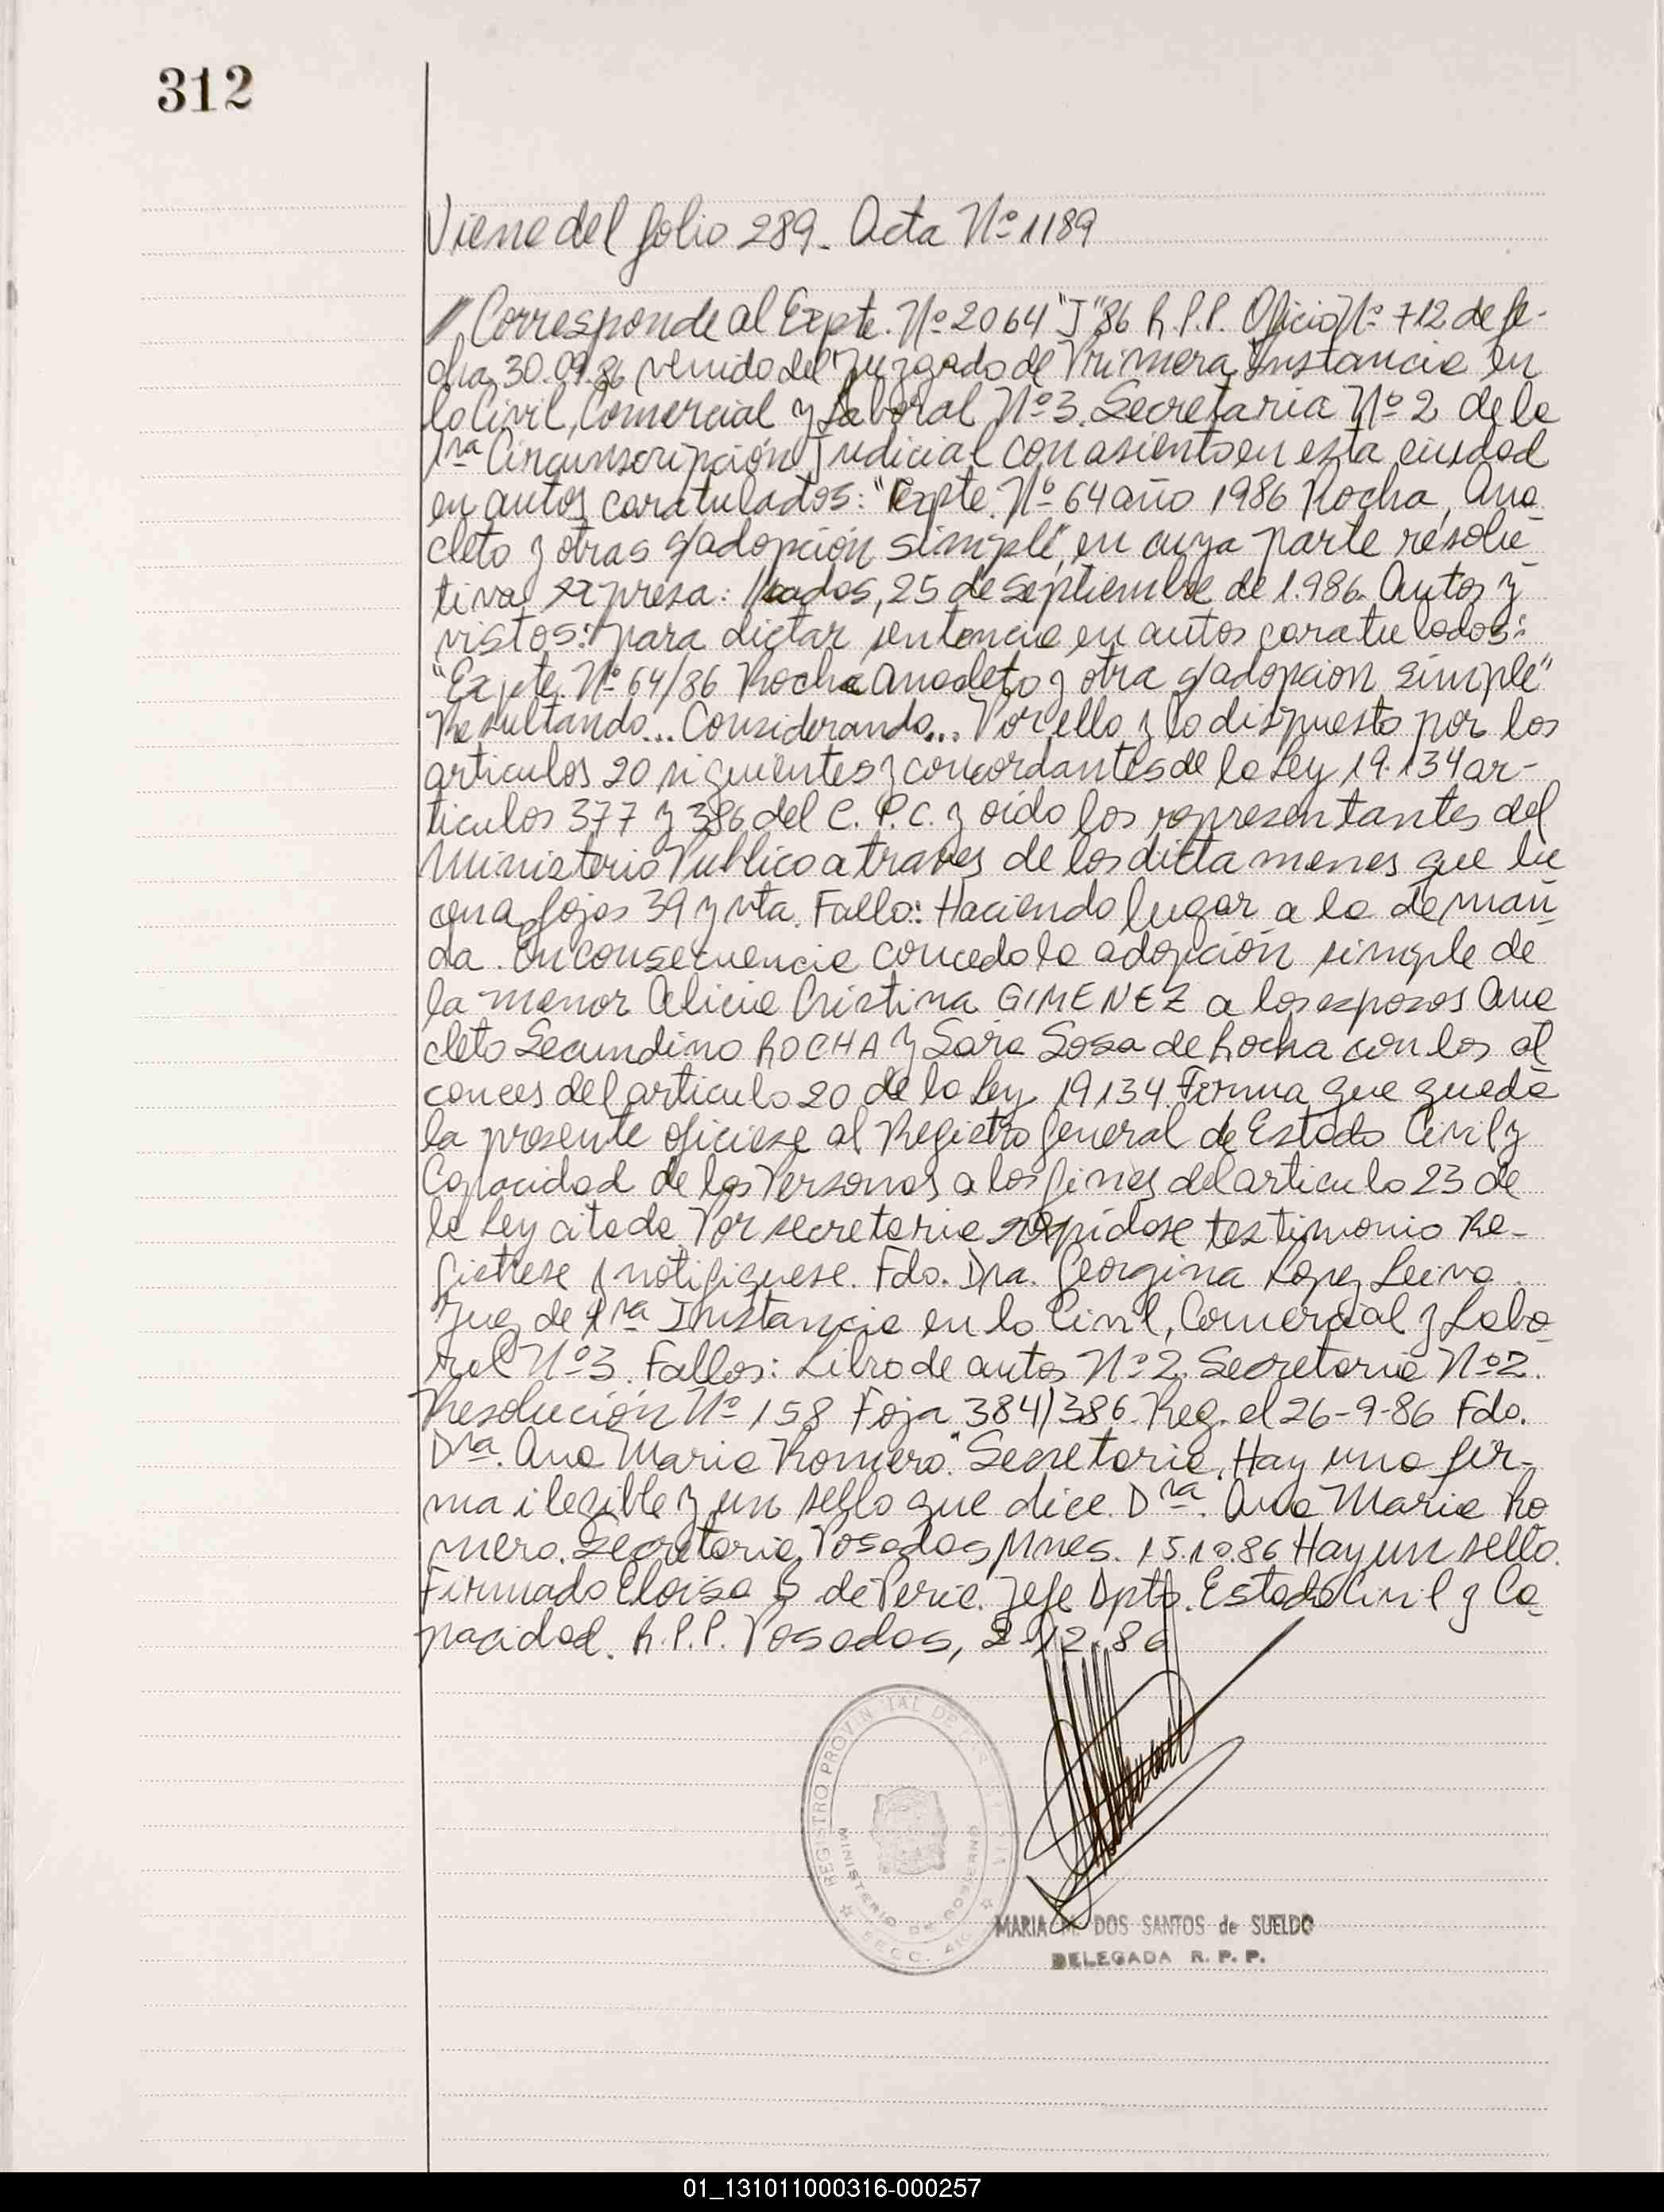 312
Viene del folio 289. Acta Nº 1189
// Corresponde al Expte. Nº 2064 "J" 86 R.P.P. Oficio Nº 712 de fe-
cha 30.09.86 venido del Juzgado de Primera Instancia en
lo Civil, Comercial y Laboral Nº 3. Secretaria Nº 2 de la
1ra Circunscripción Judicial con asiento en esta ciudad
en autos caratulados: "Expte. Nº 64 año 1986 Rocha, Ana
cleto y otras s/adopción simple", en cuya parte resolu
tiva expresa: 25 de septiembre de 1.986. Autos y
vistos: para dictar sentencia en autos caratulados:
"Expte. Nº 64/86 Rocha Anacleto y otra s/adopcion simple"
Resultando... Considerando... Por ello y lo dispuesto por los
articulos 20 siguientes y concordantes de la Ley 19.134 ar-
ticulos 377 y 386 del C.P.C. y oído los representantes del
Ministerio Publico a traves de los dictamenes que lu
cen a fojas 39 y vta. Fallo: Haciendo lugar a la deman
da. En consecuencia concedo la adopción simple de
la menor Alicia Cristina GIMENEZ a los esposos Ana
cleto Secundino ROCHA y Sara Sosa de Rocha con los al
cances del articulo 20 de la Ley 19134. Firma que quede
la presente oficiese al Registro General de Estado Civil y
Capacidad de las Personas a los fines del articulo 23 de
la Ley citada. Por secretaria expídase testimonio Re-
gistrese y notifiquese. Fdo. Dra. Georgina Lopez Leiva.
Juez de 1ra Instancia en lo Civil, Comercial y Labo
ral Nº 3. Fallos: Libro de autos Nº 2. Secretaria Nº 2.
Resolución Nº 158 Foja 384/386. Reg. el 26-9-86 Fdo.
Dra. Ana Maria Romero." Secretaria. Hay una fir-
ma ilegible y un sello que dice. Dra. Ana Maria Ro
mero. Secretaria. Posadas, Mnes. 15.10.86 Hay un sello.
Firmado Eloisa de Peric. Jefe Dpto. Estado Civil y Ca
pacidad. R.P.P. Posadas, 2-12-86
REGISTRO PROVINCIAL DE LAS
MINISTERIO DE GOBIERNO
SECC.
MARIA M. DOS SANTOS de SUELDO
DELEGADA R. P. P.
01_131011000316-000257